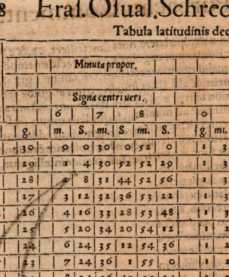 8 Eras. Osual. Schrec
Tabula latitudinis dec
Minuta propor.
Signa centri veri.
6 7 8 0
g. m. S. m. S. m. S. g mi.
30 0 0 30 0 52 0 1 3
29 4 30 52 52 29 1 3
28 8 31 44 52 56 1 3
27 3 12 32 36 53 22 1 3
26 4 16 33 28 53 48 1 3
5 20 34 20 54 12 1 2
24 6 24 35 12 54 36 1 2
23 7 24 36 1 55 0 1 2